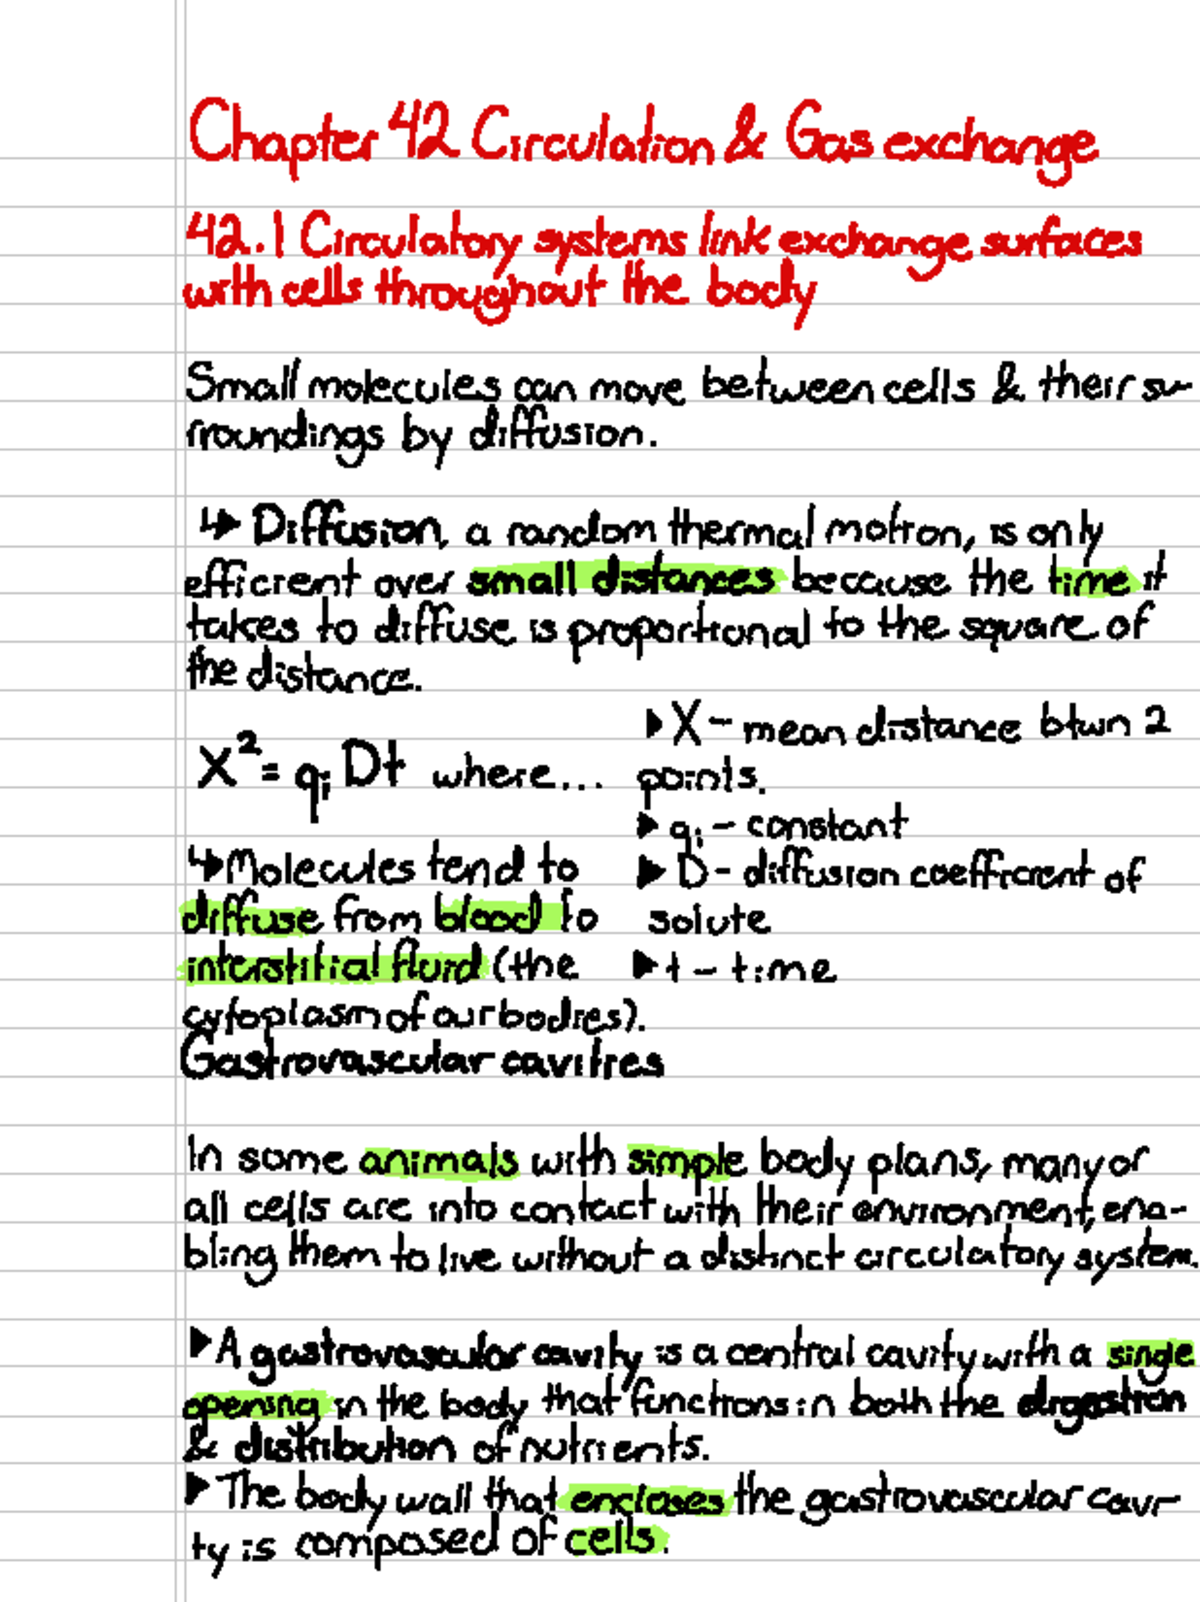 Chapter 42 Circulation & Gas exchange
42.1 Circulatory systems link exchange surfaces
with cells throughout the body
Small molecules can move between cells & their su-
rroundings by diffusion.
↳ Diffusion, a random thermal motion, is only
efficient over small distances because the time it
takes to diffuse is proportional to the square of
the distance.
X² = qᵢ Dt where...
▶ X - mean distance btwn 2
points.
▶ qᵢ - constant
▶ D - diffusion coefficient of
solute
▶ t - time
↳ Molecules tend to
diffuse from blood to
interstitial fluid (the
cytoplasm of our bodies).
Gastrovascular cavities
In some animals with simple body plans, many or
all cells are into contact with their environment, ena-
bling them to live without a distinct circulatory system.
▶ A gastrovascular cavity is a central cavity with a single
opening in the body that functions in both the digestion
& distribution of nutrients.
▶ The body wall that encloses the gastrovascular cavi-
ty is composed of cells.